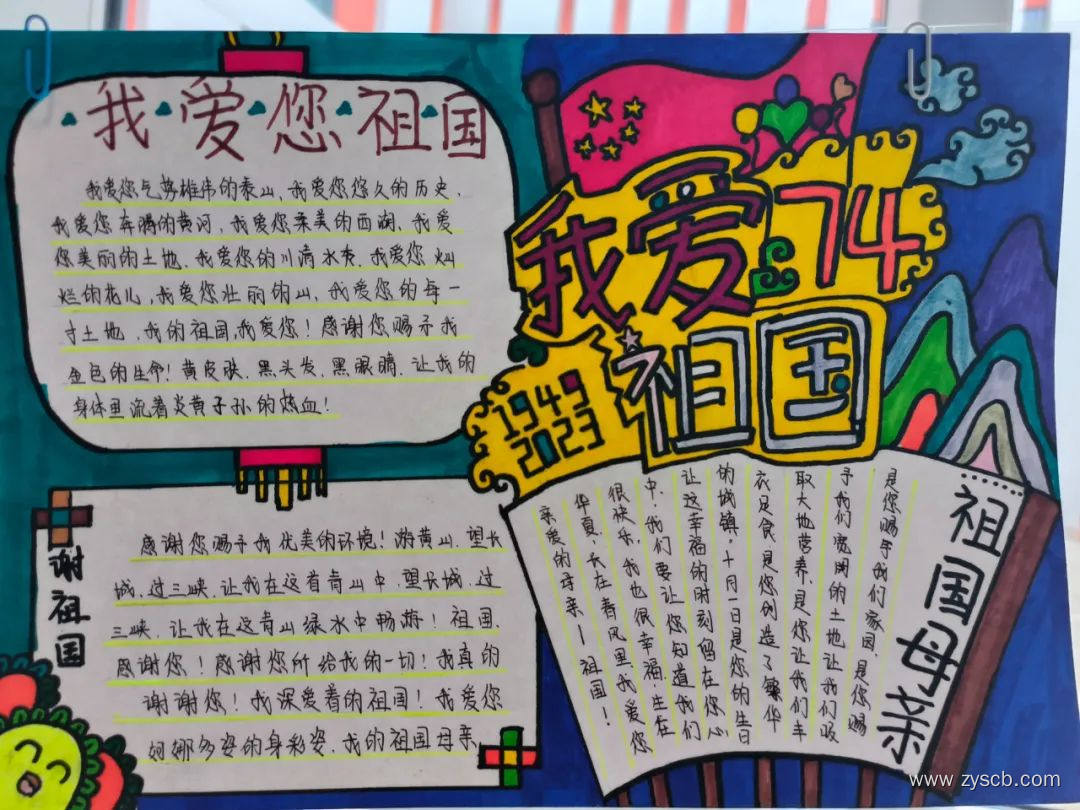 我爱您祖国
我爱您气势雄伟的泰山、我爱您悠久的历史、
我爱您奔腾的黄河,我爱您柔美的西湖、我爱
您美丽的土地、我爱您的川滴水秀、我爱您灿
烂的花儿,我爱您壮丽的山、我爱您的每一
寸土地、我的祖国,我爱您!感谢您赐予我
金色的生命!黄皮肤、黑头发、黑眼睛、让我的
身体里流着炎黄子孙的热血!
我爱74
祖国
1949
2023
谢祖国
感谢您赐予我优美的环境!游黄山、望长
城、过三峡、让我在这首青山中、望长城、过
三峡、让我在这青山绿水中畅游!祖国、
感谢您!感谢您所给我的一切!我真的
谢谢您!我深爱着的祖国!我爱您
婀娜多姿的身彩姿、我的祖国母亲
祖国母亲
是您赐予我们家园、是您赐
予我们宽阔的土地让我们吸
取大地营养是您让我们丰
衣足食是您创造了繁华
的城镇,十月一日是您的生日
让这幸福的时刻留在您心
中,我们要让您知道我们
很快乐,我也很幸福!生在
华夏、长在春风里、我爱您
亲爱的母亲—祖国!
www.zyscb.com